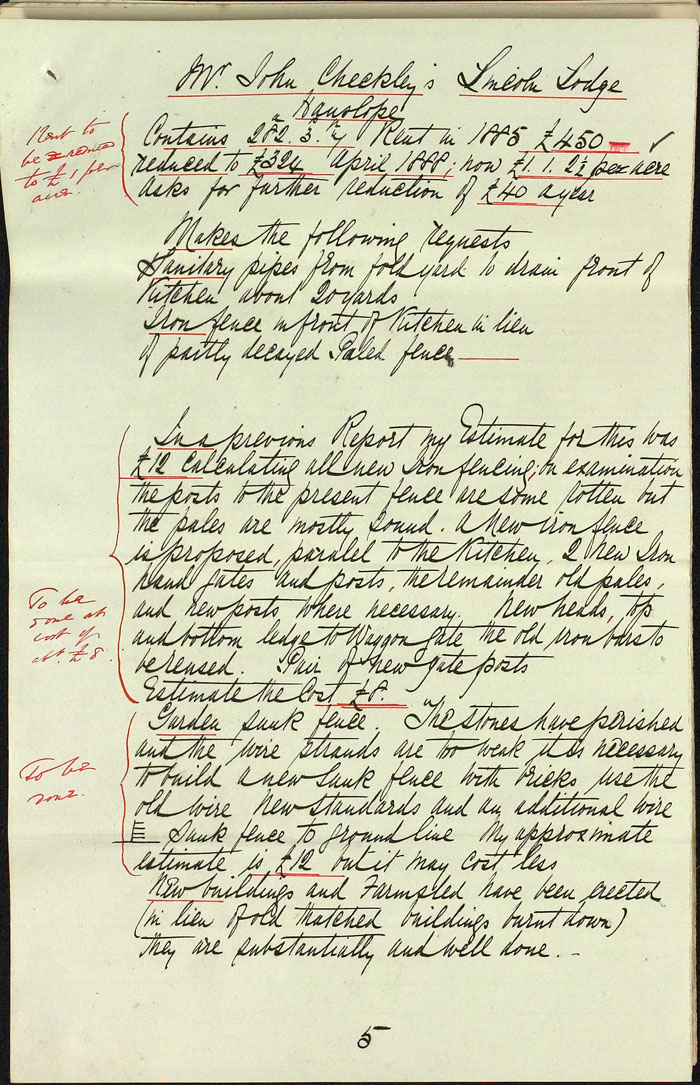 Mr. John Checkley's Lincoln Lodge
Hanslope
Rent to
be reduced
to £1 per
acre.
Contains 282. 3. Rent in 1885 £450
reduced to £324 April 1888; now £1. 1. 2½ per acre
Asks for further reduction of £40 a year
Makes the following requests
Sanitary pipes from fold yard to drain front of
Kitchen about 20 yards
Iron fence in front of Kitchen in lieu
of partly decayed Paled fence
In a previous Report my Estimate for this was
£12 Calculating all new Iron fencing, on examination
the posts to the present fence are some rotten but
the pales are mostly sound. A New iron fence
is proposed, paralel to the Kitchen, 2 new Iron
hand gates and posts, the remainder old pales,
and new posts where necessary. New heads, top
and bottom ledge to Waggon gate the old iron
be reused. Pair of new gate posts
Estimate the Cost £8.
To be
done at
cost of
abt. £8.
Garden sunk fence. The stones have perished
and the wire strands are too weak it is necessary
to build a new Sunk fence with bricks use the
old wire New Standards and an additional wire
Sunk fence to ground line My approximate
estimate is £12 but it may cost less
To be
done.
New buildings and Farmsted have been erected
(in lieu of old thatched buildings burnt down)
they are substantially and well done. -
5